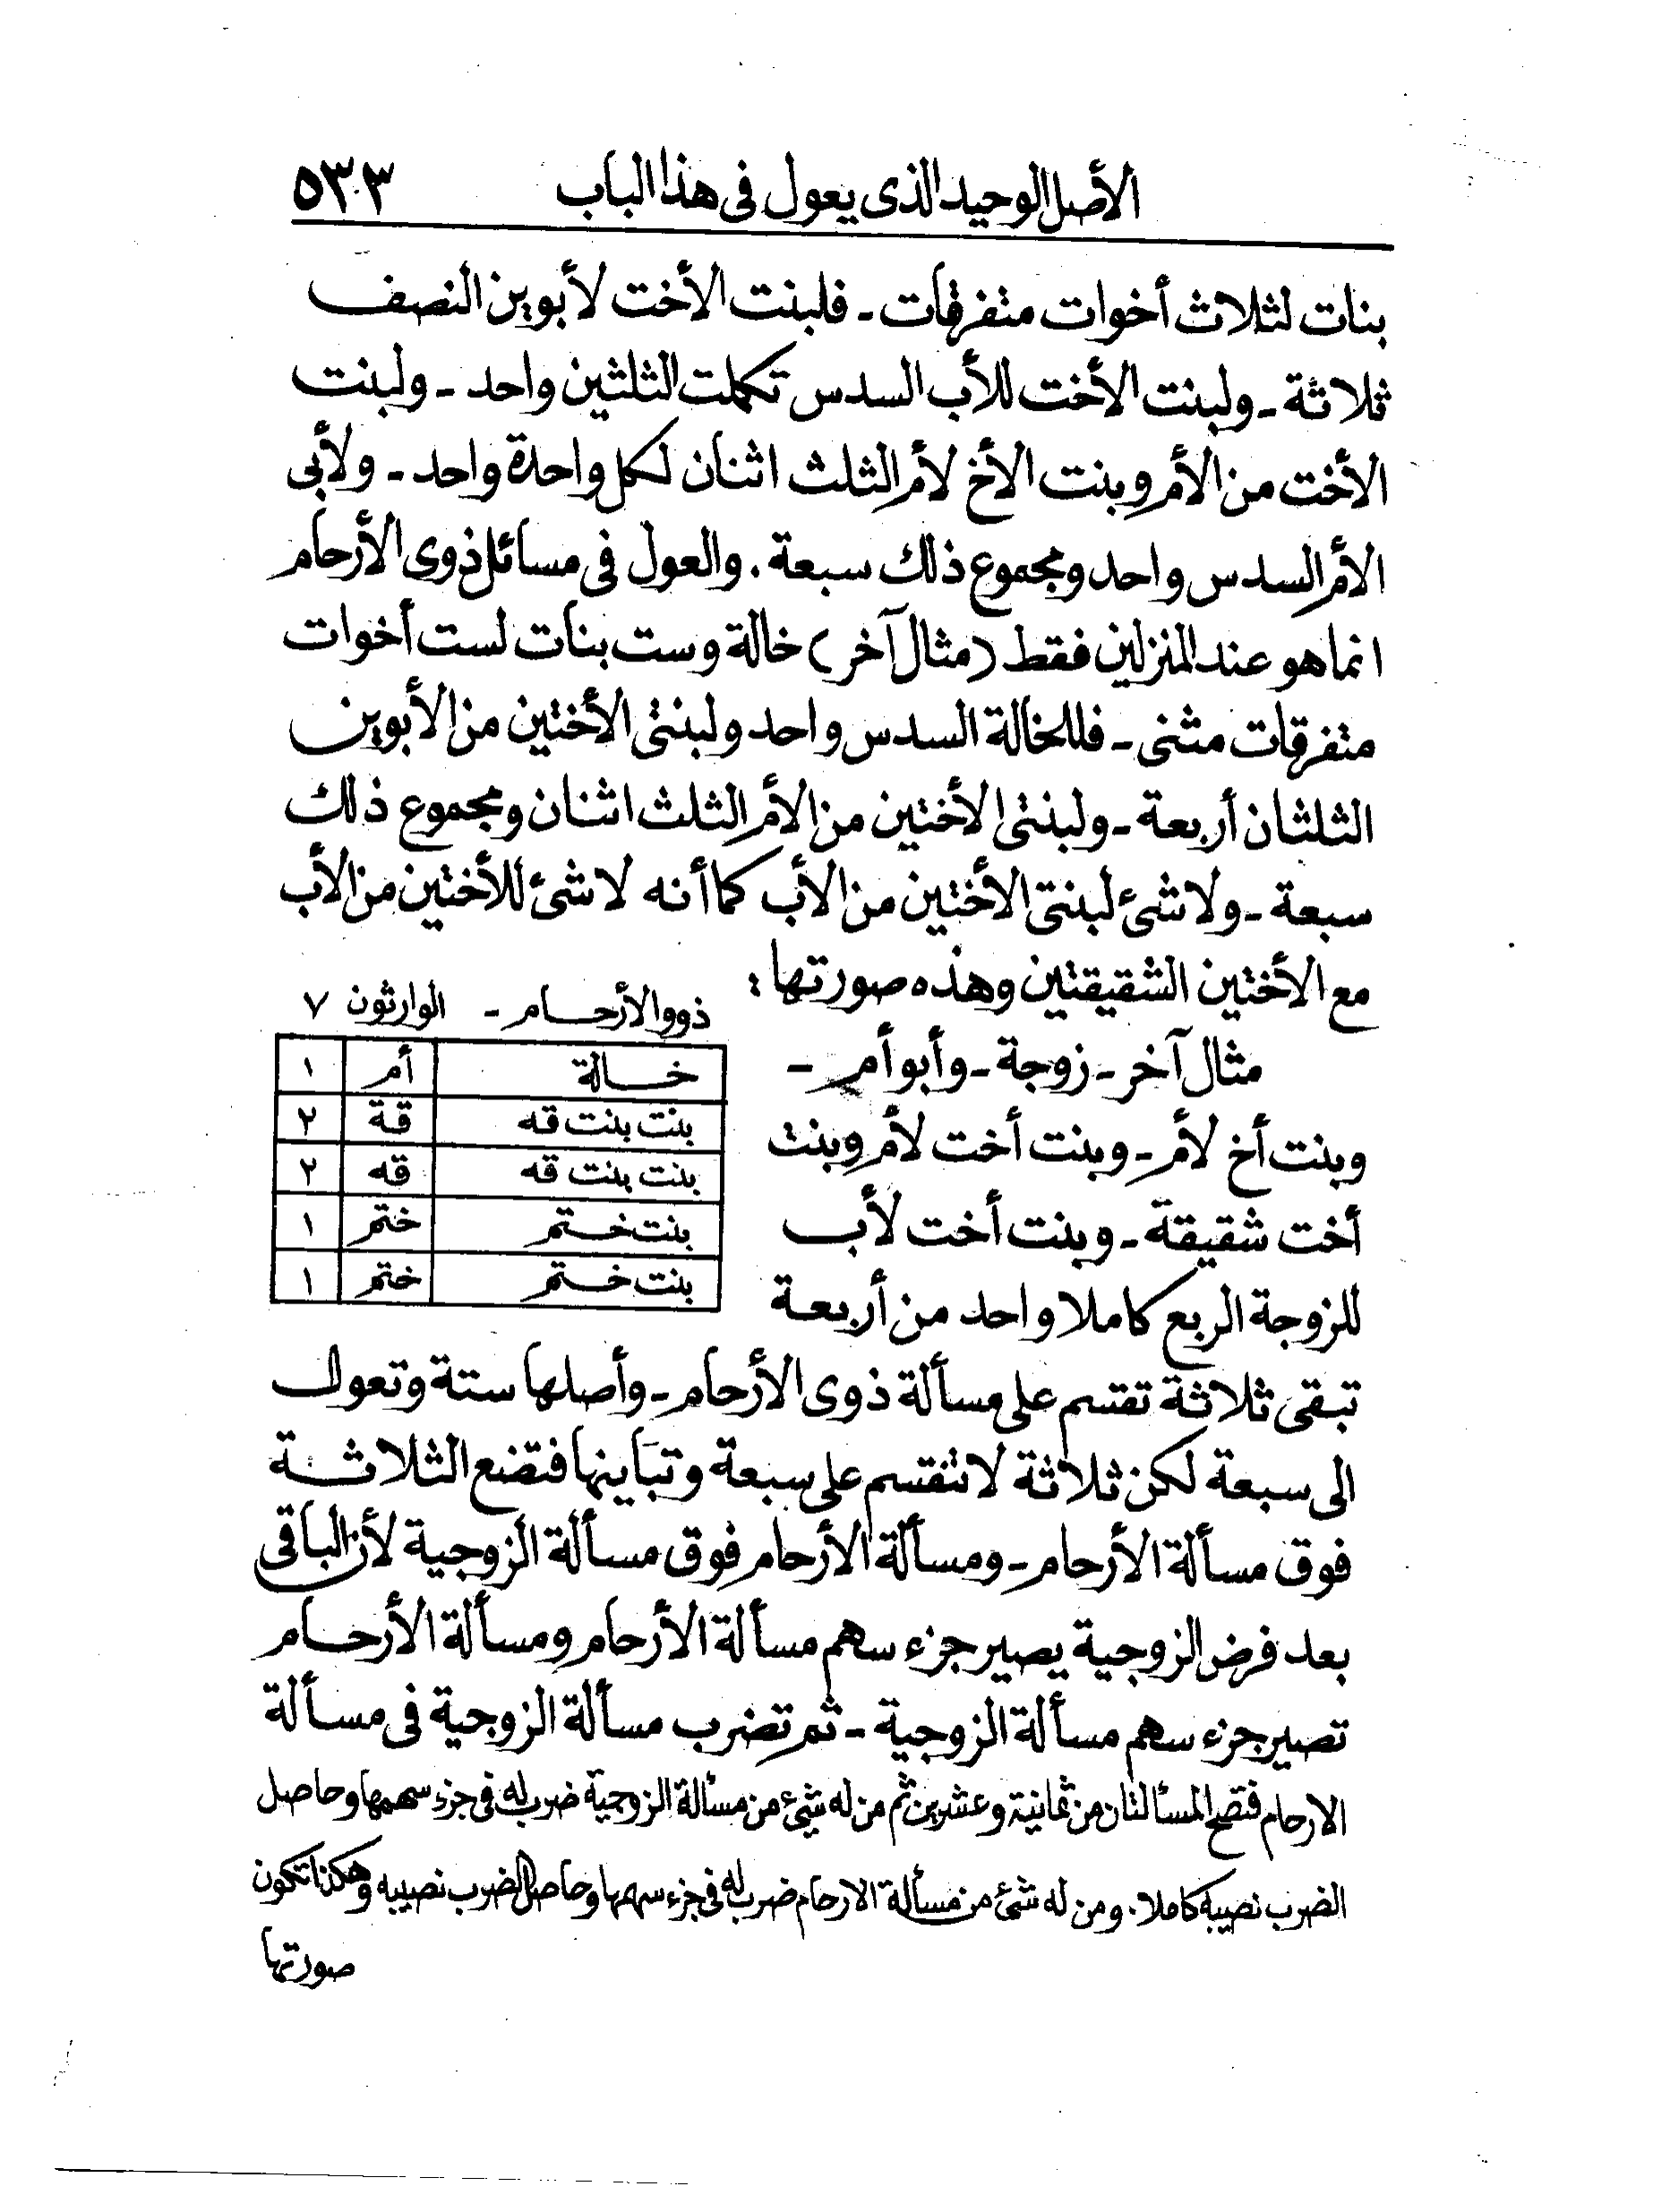 الأصل الوحيد الذى يعول فى هذا الباب ٥٣٣
بنات لثلاث أخوات متفرقات - فلبنت الأخت لأبوين النصف
ثلاثة - ولبنت الأخت للأب السدس تكملت الثلثين واحد - ولبنت
الأخت من الأم وبنت الأخ لأم الثلث اثنان لكل واحدة واحد - ولأبى
الأم السدس واحد ومجموع ذلك سبعة . والعول فى مسائل ذوى الأرحام
انما هو عند المنزلين فقط (مثال آخر) خالة وست بنات لست أخوات
متفرقات مثنى - فللخالة السدس واحد ولبنتى الأختين من الأبوين
الثلثان أربعة - ولبنتى الأختين من الأم الثلث اثنان ومجموع ذلك
سبعة - ولا شئ لبنتى الأختين من الأب كما أنه لا شئ للأختين من الأب
مع الأختين الشقيقتين وهذه صورتها :
ذوو الأرحام - الوارثون ٧
خالة أم ١
بنت بنت قه قة ٢
بنت بنت قه قه ٢
بنت ختم ختم ١
بنت ختم ختم ١
مثال آخر - زوجة - وأبو أم -
وبنت أخ لأم - وبنت أخت لأم وبنت
أخت شقيقة - وبنت أخت لأب
للزوجة الربع كاملا واحد من أربعة
تبقى ثلاثة تقتسم على مسألة ذوى الأرحام - وأصلها ستة وتعول
الى سبعة لكن ثلاثة لا تنقسم على سبعة وتباينها فتضع الثلاثة
فوق مسألة الأرحام - ومسألة الأرحام فوق مسألة الزوجية لأن الباقى
بعد فرض الزوجية يصير جزء سهم مسألة الأرحام ومسألة الأرحام
تصير جزء سهم مسألة الزوجية - ثم تضرب مسألة الزوجية فى مسألة
الارحام فتصح المسألتان من ثمانية وعشرين ثم من له شئ من مسألة الزوجية ضرب له فى جزء سهمها وحاصل
الضرب نصيبه كاملا . ومن له شئ من مسألة الارحام ضرب له فى جزء سهمها وحاصل الضرب نصيبه وهكذا تكون
صورتها